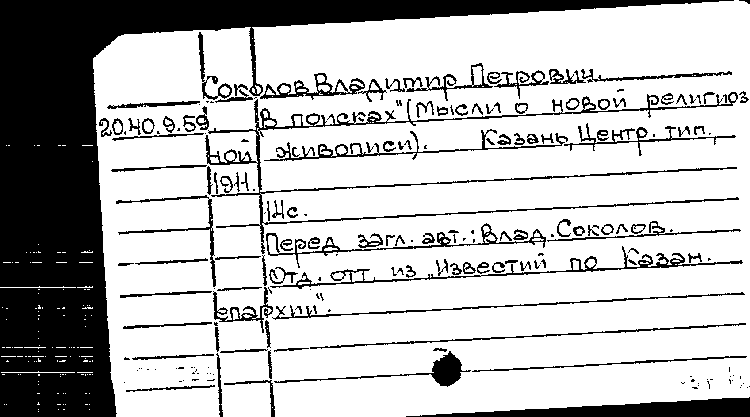 Соколов, Владимир Петрович.
20.40.9.59. "В поисках" (Мысли о новой религиоз
ной живописи). Казань, Центр. тип.,
1911.
14с.
Перед загл. авт.: Влад. Соколов.
Отд. отт. из "Известий по Казан.
епархии".